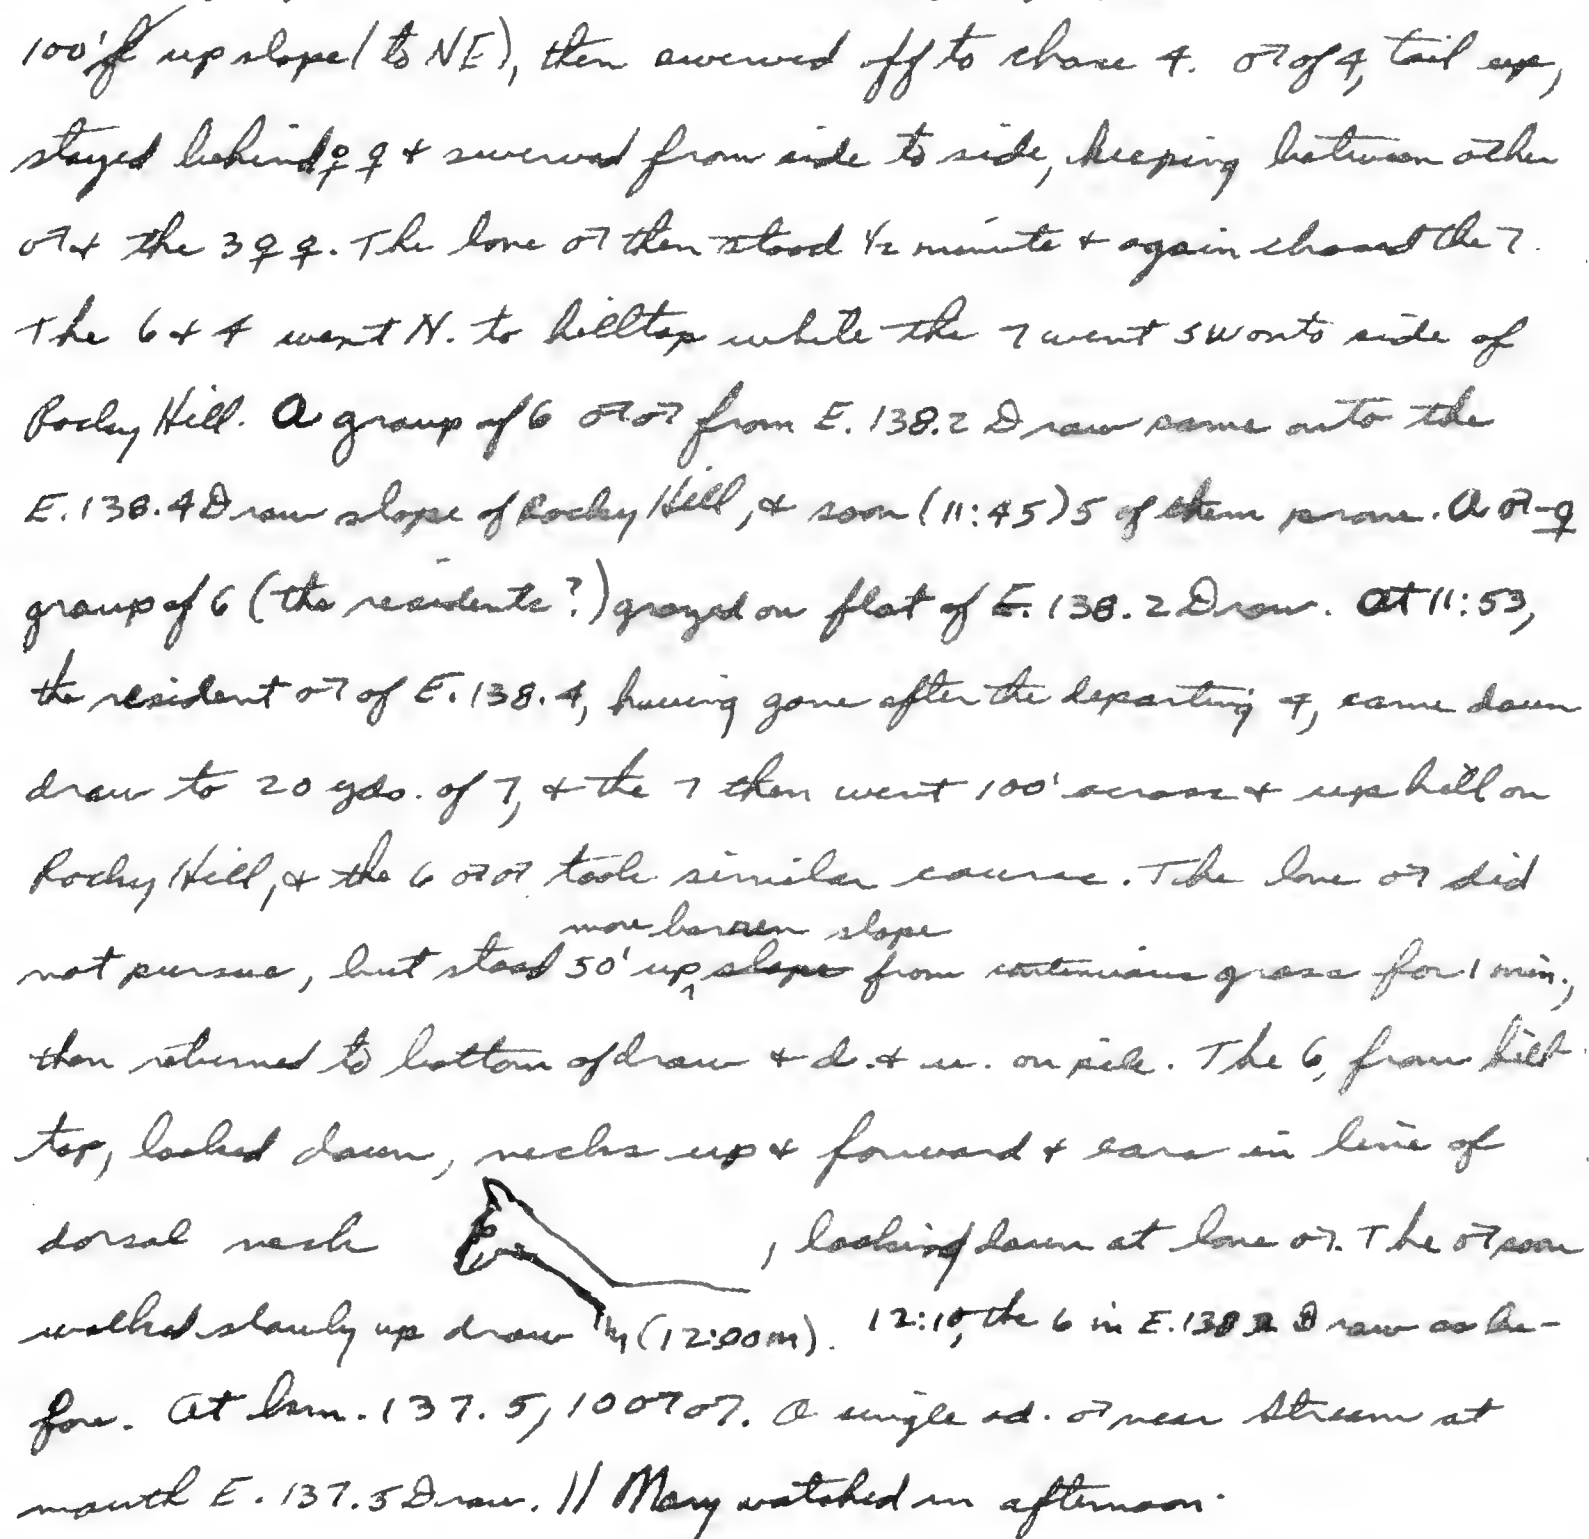 100' up slope (to NE), then swerved off to chase 4. ♂ of 4, tail up,
stayed behind ♀♀ & swerved from side to side, keeping between other
♂ & the 3 ♀♀. The lone ♂ then stood ½ minute & again chased the 7.
The 6 & 4 went N. to hilltop while the 7 went SW onto side of
Rocky Hill. A group of 6 ♂♂ from E. 138.2 Draw came onto the
E. 138.4 Draw slope of Rocky Hill, & soon (11:45) 5 of them prone. A ♂-♀
group of 6 (the residents?) grazed on flat of E. 138.2 Draw. At 11:53,
the resident ♂ of E. 138.4, having gone after the departing 4, came down
draw to 20 yds. of 7, & the 7 then went 100' across & up hill on
Rocky Hill, & the 6 ♂♂ took similar course. The lone ♂ did
more barren slope
not pursue, but stood 50' up slope from continuous grass for 1 min.,
then returned to bottom of draw & d. & u. on pile. The 6, from hill-
top, looked down, necks up & forward & ears in line of
dorsal neck , looking down at lone ♂. The ♂ soon
walked slowly up draw (12:00m). 12:10, the 6 in E. 138.2 Draw as be-
fore. At km. 137.5, 10 ♂♂. A single ad. ♂ near stream at
mouth E. 137.5 Draw. // Mary watched in afternoon.